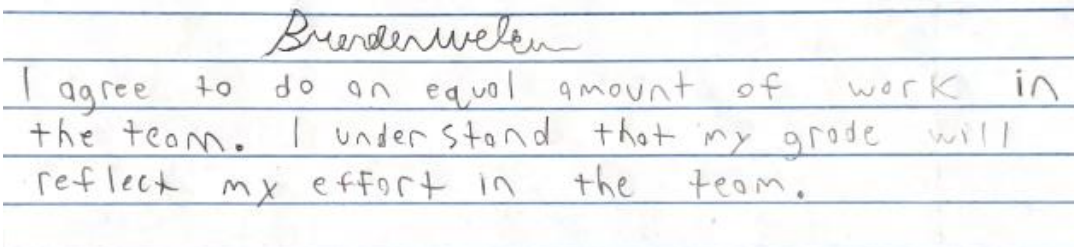 I agree to do an equal amount of work in
the team. I understand that my grade will
reflect my effort in the team.